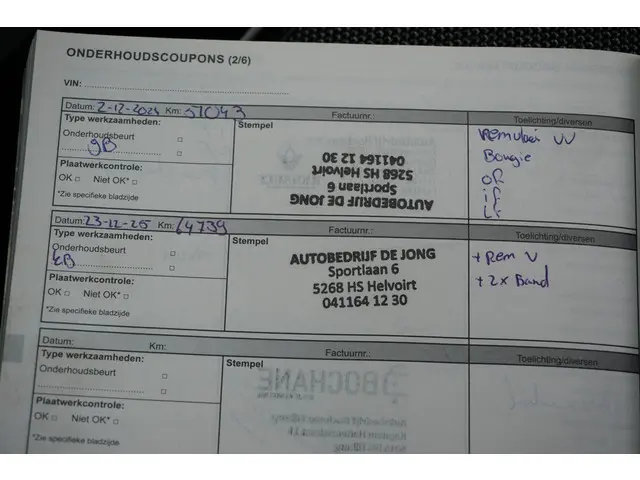 ONDERHOUDSCOUPONS (2/6)
VIN:
Datum: 2-12-2024 Km: 51043 Factuurnr.: Toelichting/diversen
Type werkzaamheden: Stempel
Onderhoudsbeurt
gB
Plaatwerkcontrole:
OK Niet OK*
*Zie specifieke bladzijde
AUTOBEDRIJF DE JONG
Sportlaan 6
5268 HS Helvoirt
041164 12 30
VV
Bougie
of
if
Lf
Datum: 23-12-25 Km: 64739 Factuurnr.: Toelichting/diversen
Type werkzaamheden: Stempel
Onderhoudsbeurt
kB
Plaatwerkcontrole:
OK Niet OK*
*Zie specifieke bladzijde
AUTOBEDRIJF DE JONG
Sportlaan 6
5268 HS Helvoirt
041164 12 30
+ Rem V
+ 2x Band
Datum: Km: Factuurnr.: Toelichting/diversen
Type werkzaamheden: Stempel
Onderhoudsbeurt
Plaatwerkcontrole:
OK Niet OK*
*Zie specifieke bladzijde
BOCHANE